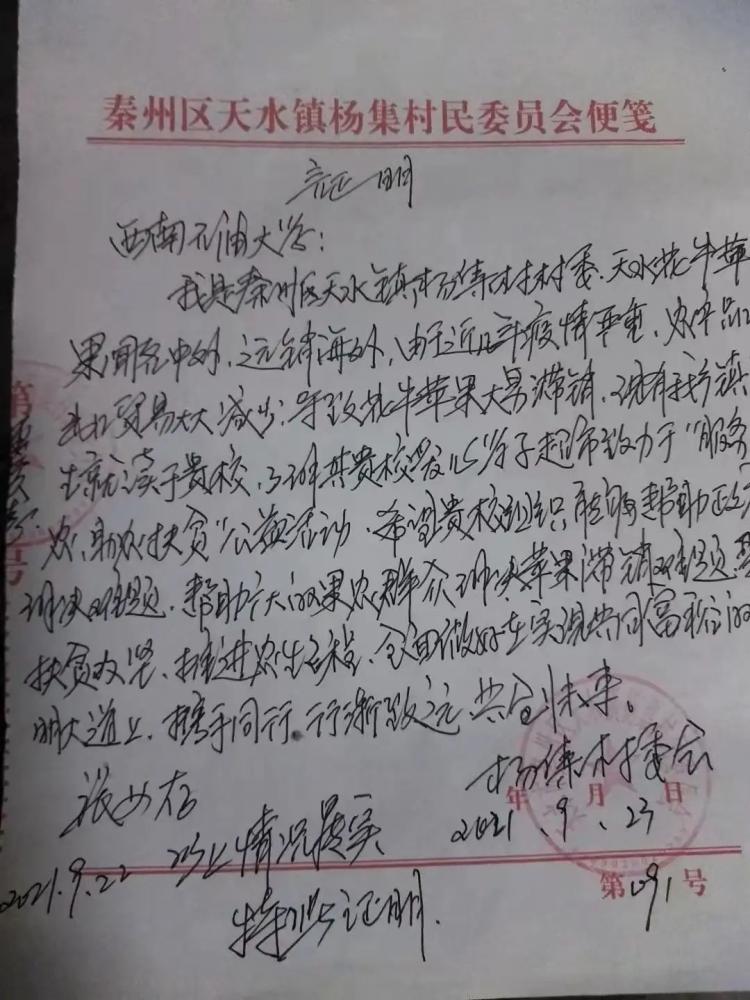 秦州区天水镇杨集村民委员会便笺
证明
西南石油大学:
我是秦州区天水镇杨集村村委、天水花牛苹
果闻名中外,远销海外,由于近几年疫情严重,农产品出
出口贸易大大减少,导致花牛苹果大量滞销,现有我乡镇
生就读于贵校,了解其贵校 子超市致力于“服务
农,助农扶贫”公益活动,希望贵校组织能够帮助
解决难题,帮助广大的果农群众解决苹果滞销难题,
扶贫攻坚,推进农生工程,全面做好在实现共同富裕的
明大道上,携手同行,行渐致远,共创未来。
杨集村委会
年 月 日
2021.9.23
张
2021.9.22
以上情况属实
特此证明.
第 091 号